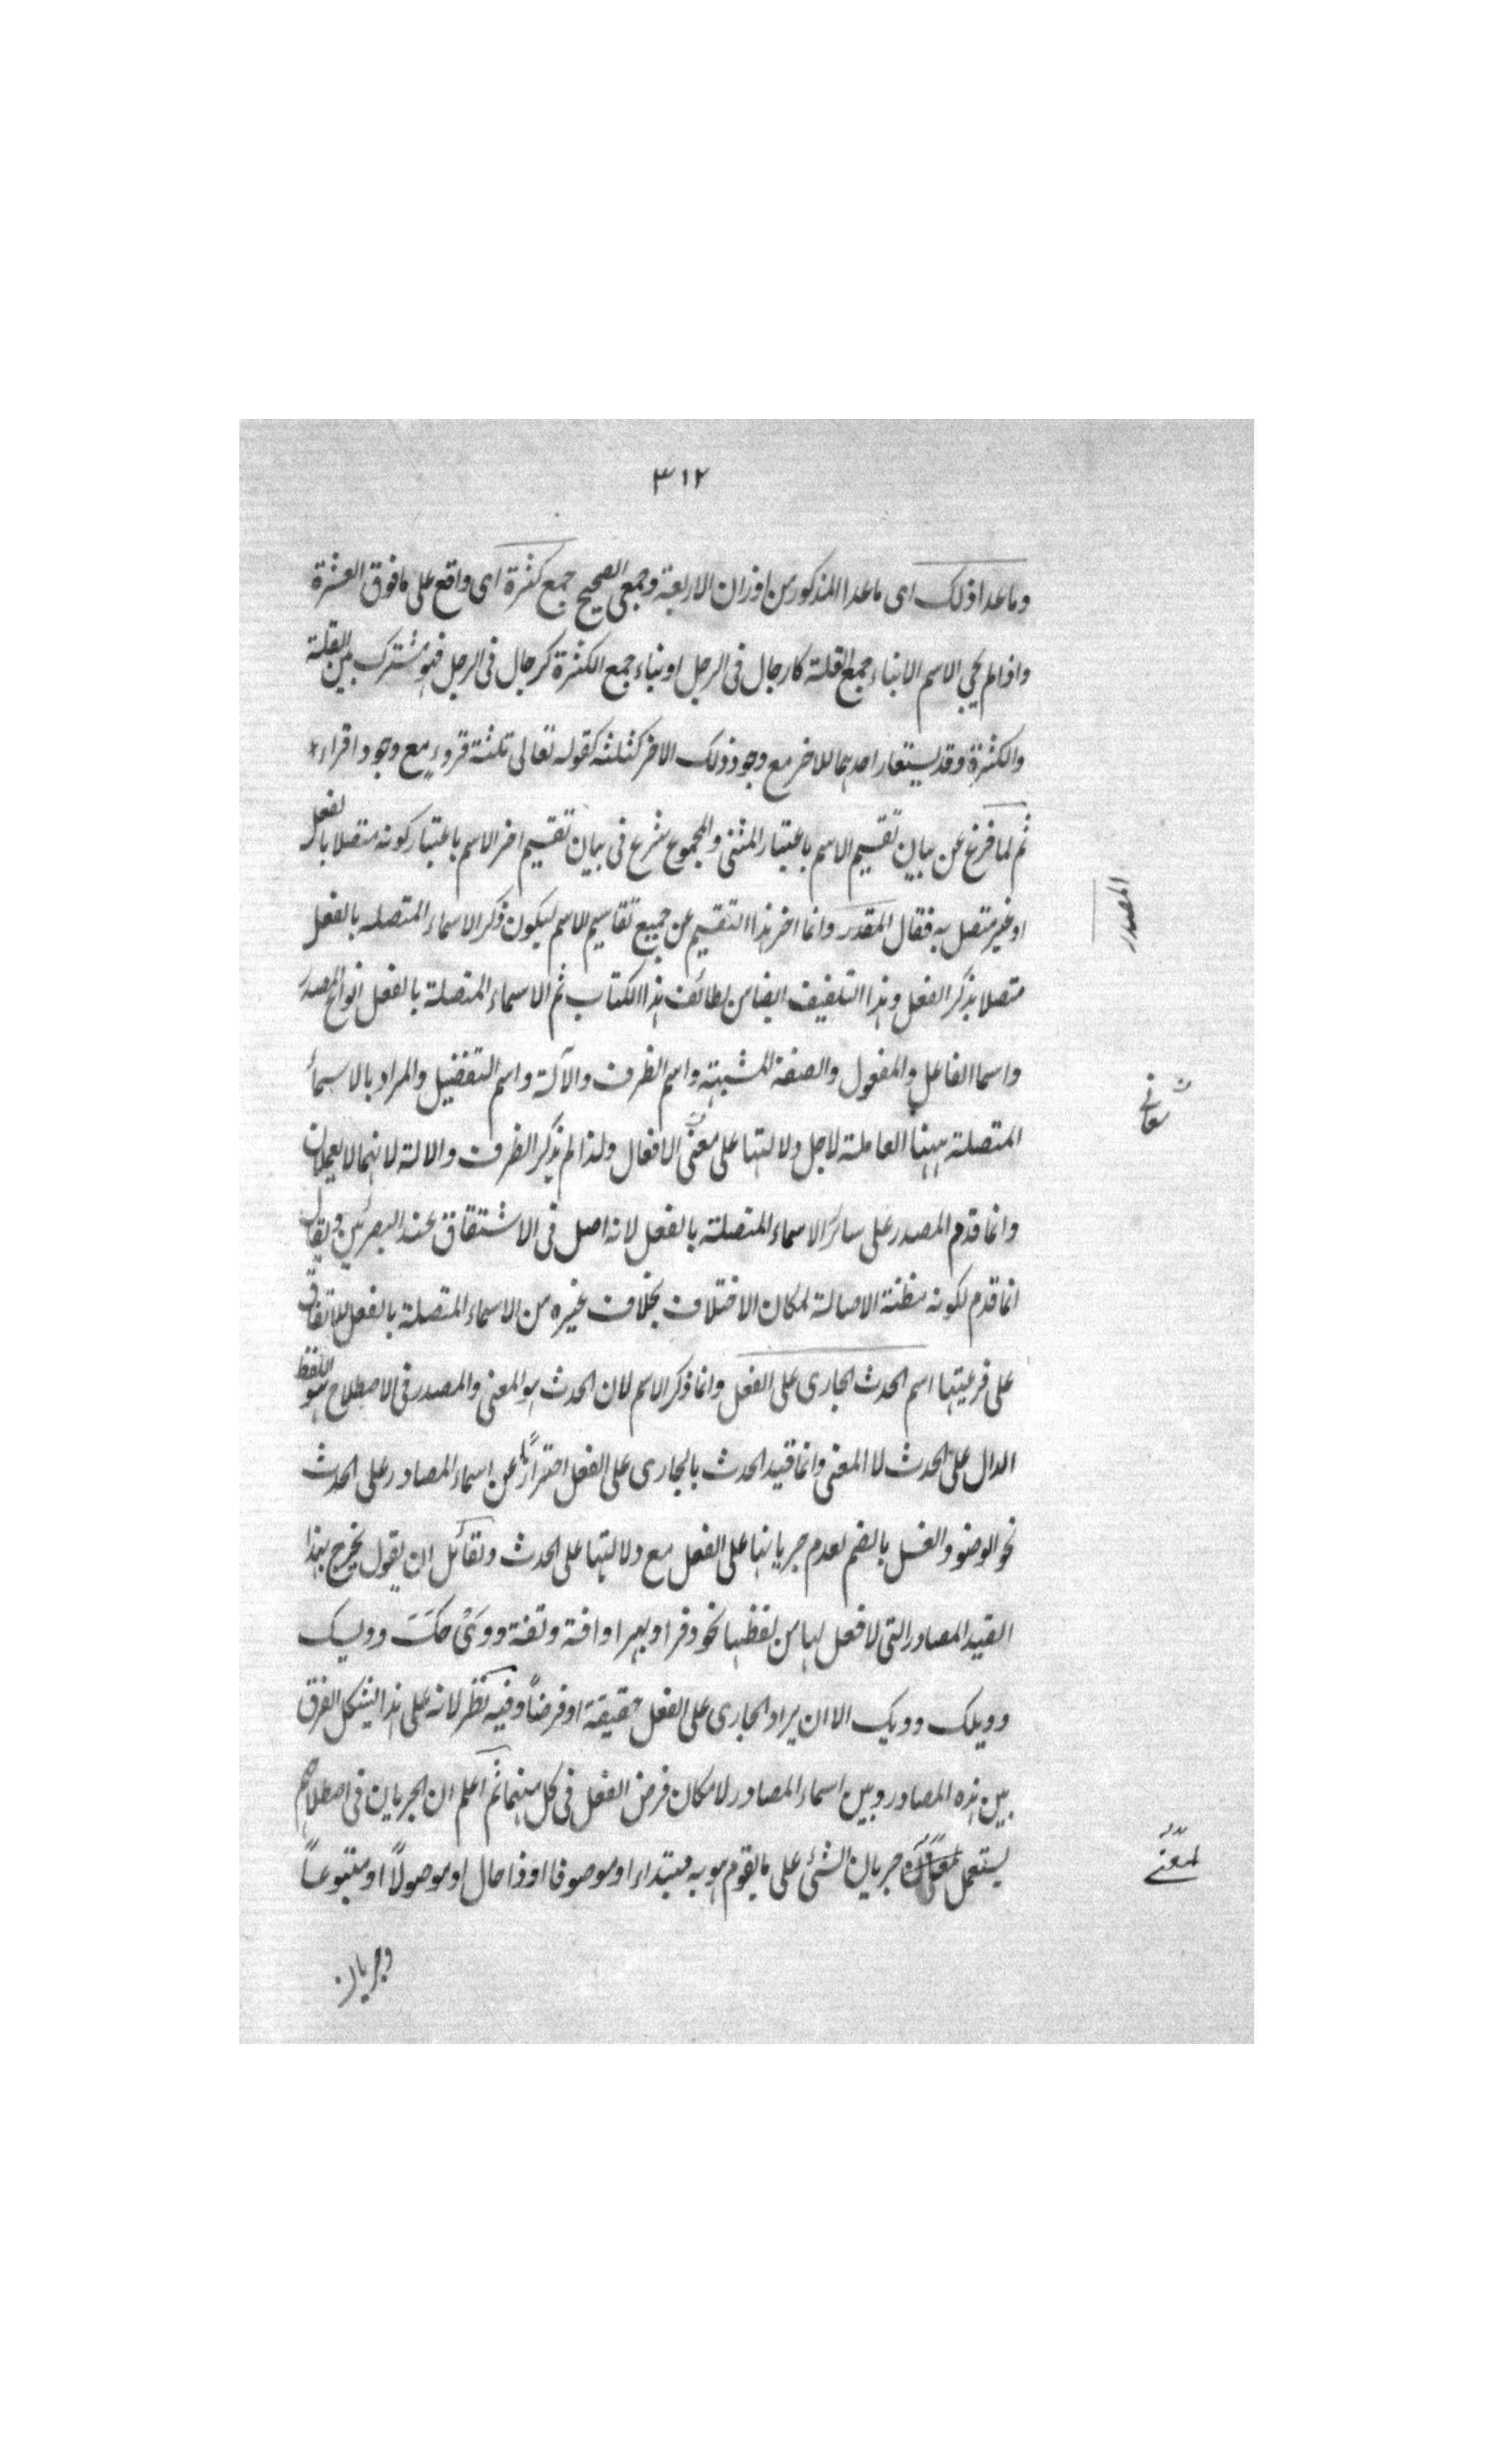 ٣١٢
وما عدا ذلك اى ما عدا المذكور من اوزان الاربعة وجمعى الصحيح جمع كثرة اى واقع على ما فوق العشرة
واذا لم يجئ الاسم الا بناء جمع القلة كارجال فى الرجل او بناء جمع الكثرة كرجال فى الرجل فهو مشترك بين القلة
والكثرة وقد يستعار احدهما للاخر مع وجود ذلك الاخر كثلثه كقوله تعالى ثلثة قروءٍ مع وجود اقراء *
ثم لما فرغ عن بيان تقسيم الاسم باعتبار المثنى والمجموع شرع فى بيان تقسيم اخر الاسم باعتبار كونه متصلا بالفعل
او غير متصل به فقال المقدر وانما اخر هذا التقسيم عن جميع تقاسيم الاسم ليكون ذكر الاسماء المتصله بالفعل
متصلا بذكر الفعل وهذا التلفيف ايضا من لطائف هذا الكتاب ثم الاسماء المتصلة بالفعل انواع المصدر
واسما الفاعل والمفعول والصفة المشبهة واسم الظرف والآلة واسم التفضيل والمراد بالاسماء
المتصلة ههنا العاملة لاجل دلالتها على معنى الافعال ولذا لم يذكر الظرف والالة لانهما لا يعملان
وانما قدم المصدر على سائر الاسماء المتصلة بالفعل لانه اصل فى الاشتقاق عند البصريين ويقال
انما قدم لكونه مظنة الاصالة لمكان الاختلاف بخلاف غيره من الاسماء المتصلة بالفعل للاتفاق
على فرعيتها اسم الحدث الجارى على الفعل وانما ذكر الاسم لان الحدث هو المعنى والمصدر فى الاصطلاح هو اللفظ
الدال على الحدث لا المعنى وانما قيد الحدث بالجارى على الفعل احترازًا عن اسماء المصادر على الحدث
نحو الوضو والغسل بالضم لعدم جريانها على الفعل مع دلالتها على الحدث ولقائل ان يقول يخرج بهذا
القيد المصادر التى لا فعل لها من لفظها نحو دفرا وبهرا وافة وتفة وويحك وويسك
وويلك وويك الا ان يراد الجارى على الفعل حقيقة او فرضاً وفيه نظر لانه على هذا يشكل الفرق
بين هذه المصادر وبين اسماء المصادر لامكان فرض الفعل فى كل منهما ثم اعلم ان الجريان فى اصطلاحهم
يستعمل جريان الشئ على ما يقوم هو به مبتداء او موصوفا او ذا حال او موصولًا او متبوعاً
وجريان
المصدر
معانى
لمعنى